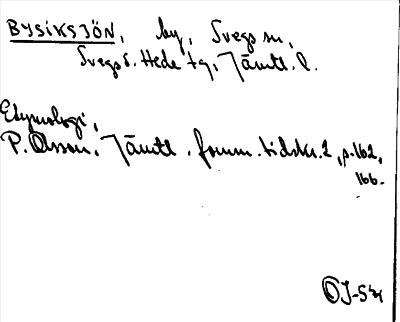 BYSIKSJÖN, by, Svegs sn,
Svegs o. Hede tg, Jämtl. l.
Etymologi,
P. Olsson. Jämtl. fornm. tidskr. 2, s. 162,
166.